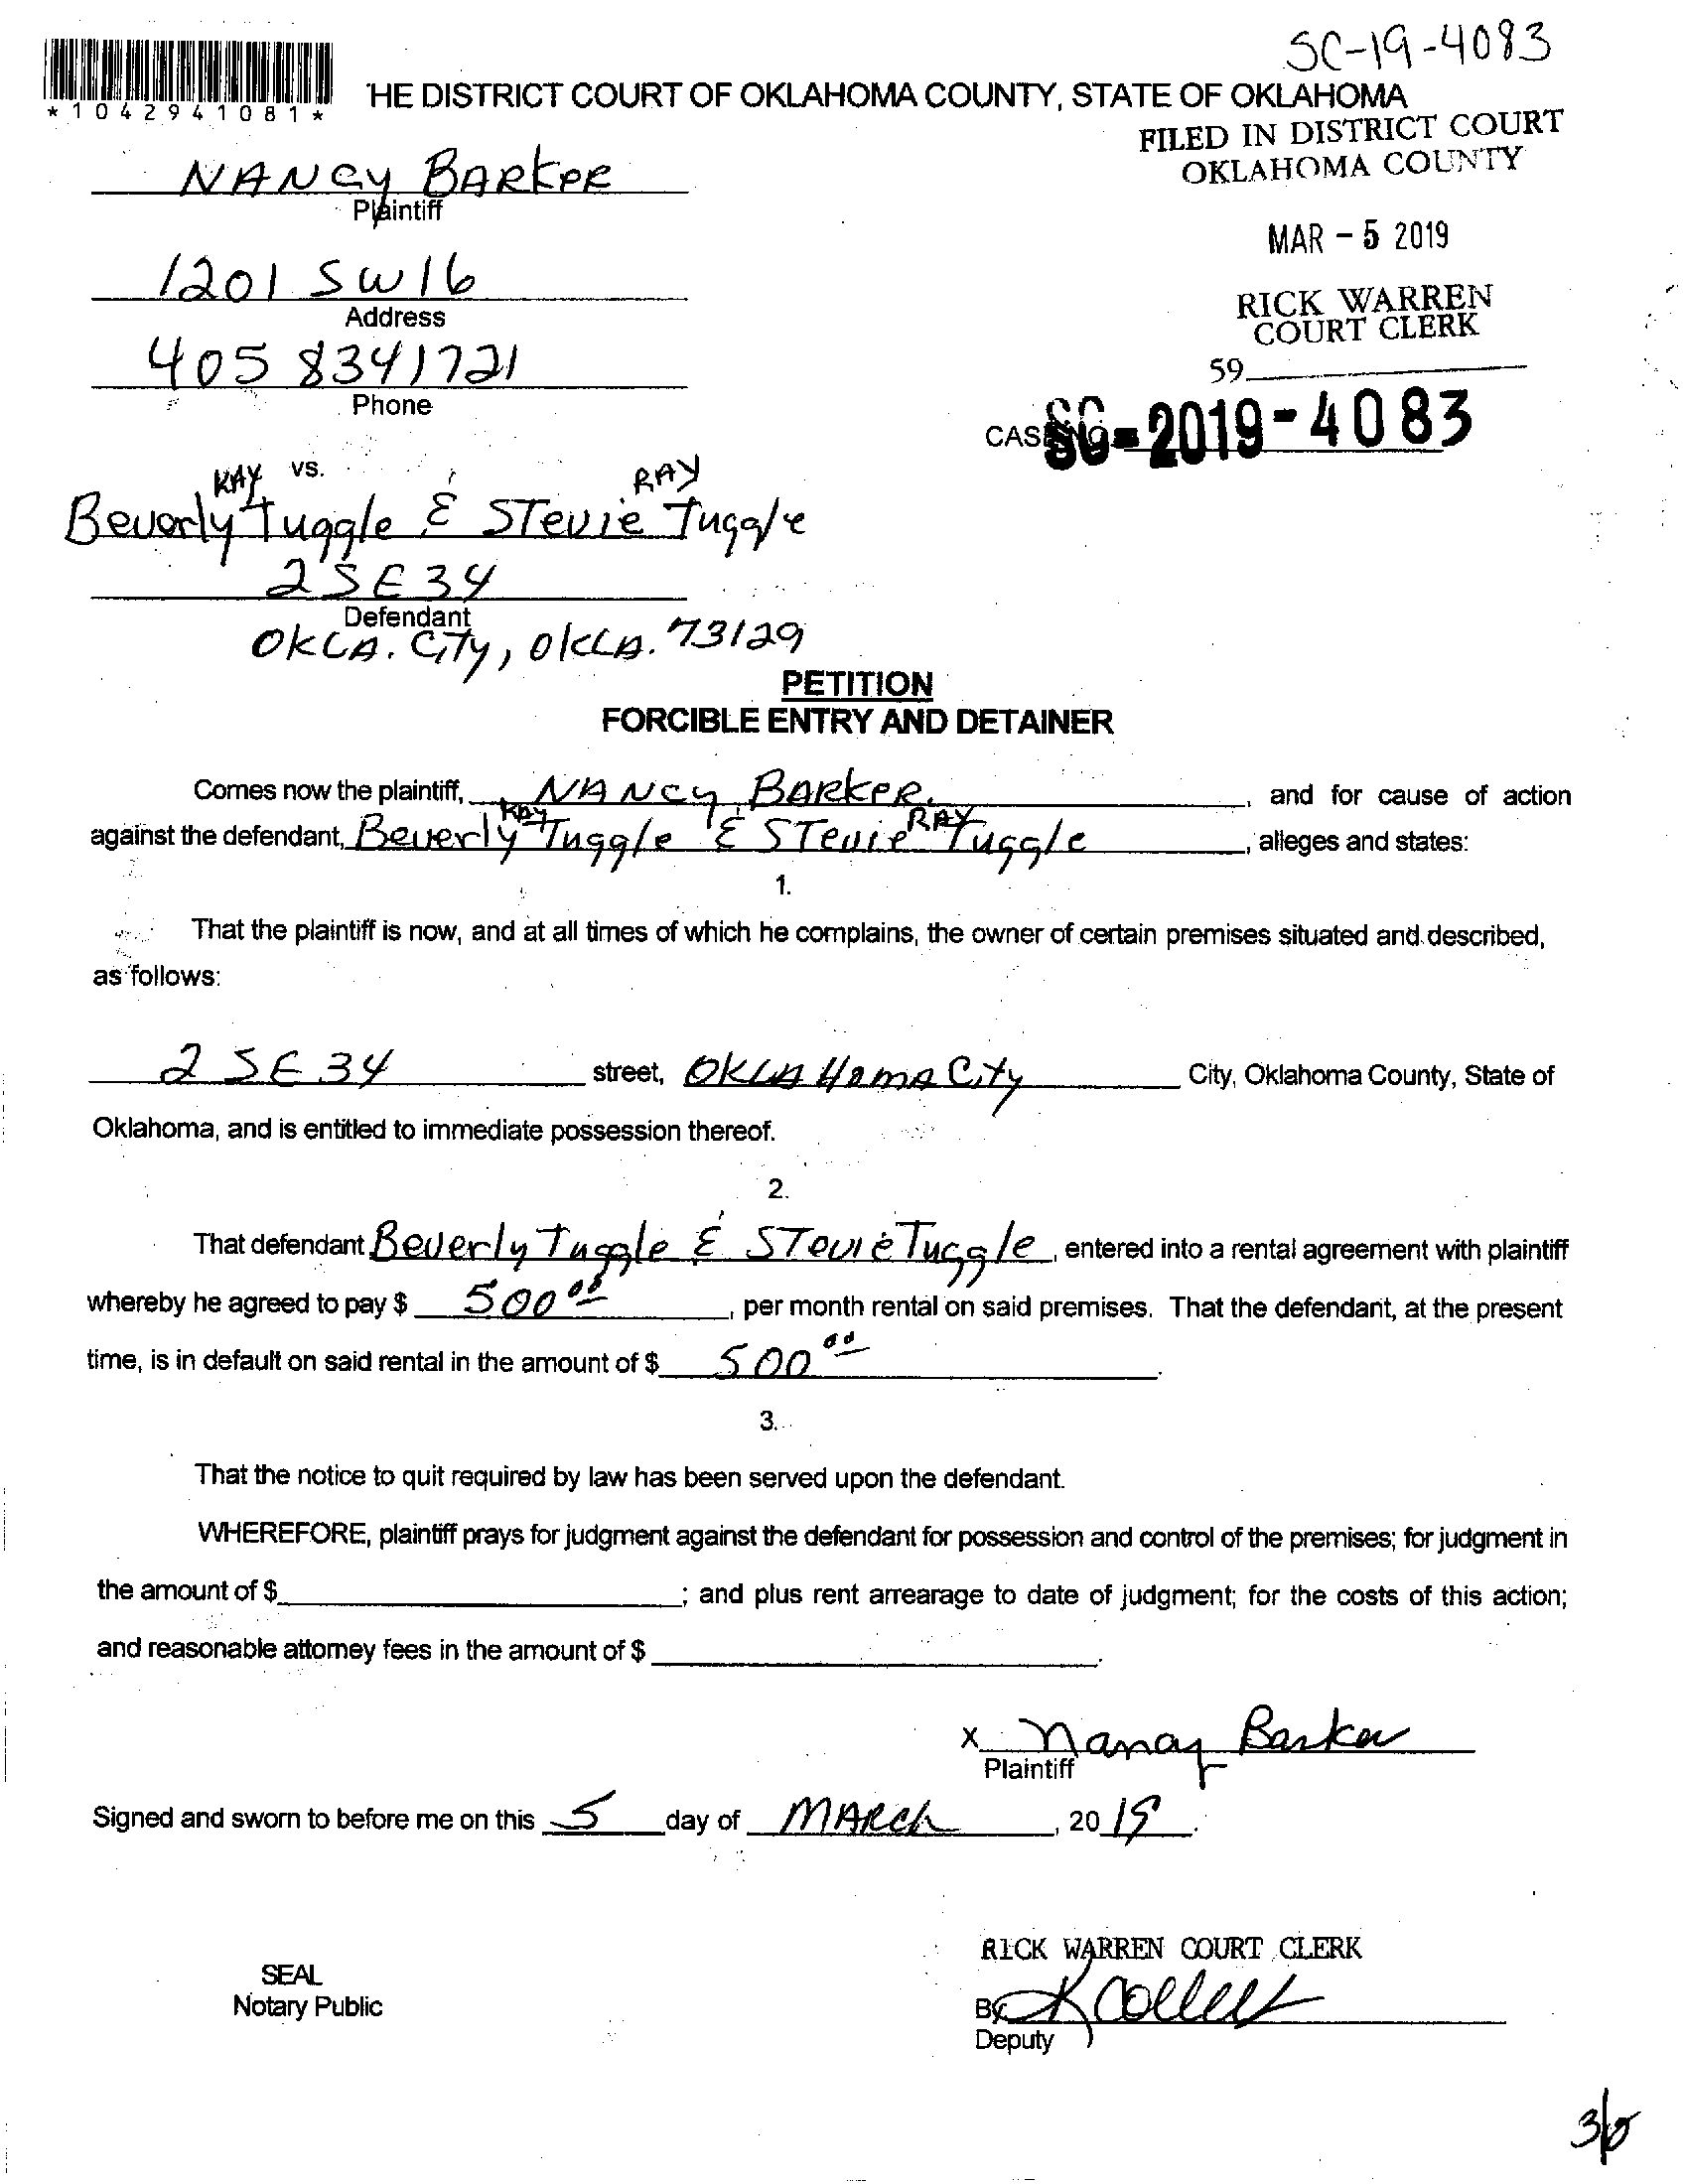 SC-19-4083
*1042941081*
HE DISTRICT COURT OF OKLAHOMA COUNTY, STATE OF OKLAHOMA
FILED IN DISTRICT COURT
OKLAHOMA COUNTY
NANCY BARKER
Plaintiff
MAR - 5 2019
1201 SW 16
Address
RICK WARREN
COURT CLERK
405 8341721
Phone
59
CASE NO. SC-2019-4083
vs.
KAY RAY
Beverly Tuggle & STEVIE Tuggle
2 SE 34
Defendant
OKLA. CITY, OKLA. 73129
PETITION
FORCIBLE ENTRY AND DETAINER
Comes now the plaintiff, NANCY BARKER, and for cause of action
KAY RAY
against the defendant, Beverly Tuggle & STEVIE Tuggle, alleges and states:
1.
That the plaintiff is now, and at all times of which he complains, the owner of certain premises situated and described,
as follows:
2 SE 34 street, OKLAHOMA City City, Oklahoma County, State of
Oklahoma, and is entitled to immediate possession thereof.
2.
That defendant Beverly Tuggle & STEVIE Tuggle, entered into a rental agreement with plaintiff
whereby he agreed to pay $ 500 00, per month rental on said premises. That the defendant, at the present
time, is in default on said rental in the amount of $ 500 00.
3.
That the notice to quit required by law has been served upon the defendant.
WHEREFORE, plaintiff prays for judgment against the defendant for possession and control of the premises; for judgment in
the amount of $ ; and plus rent arrearage to date of judgment; for the costs of this action;
and reasonable attorney fees in the amount of $ .
x Nancy Barker
Plaintiff
Signed and sworn to before me on this 5 day of MARCH, 2019.
RICK WARREN COURT CLERK
SEAL
Notary Public
By K Collett
Deputy